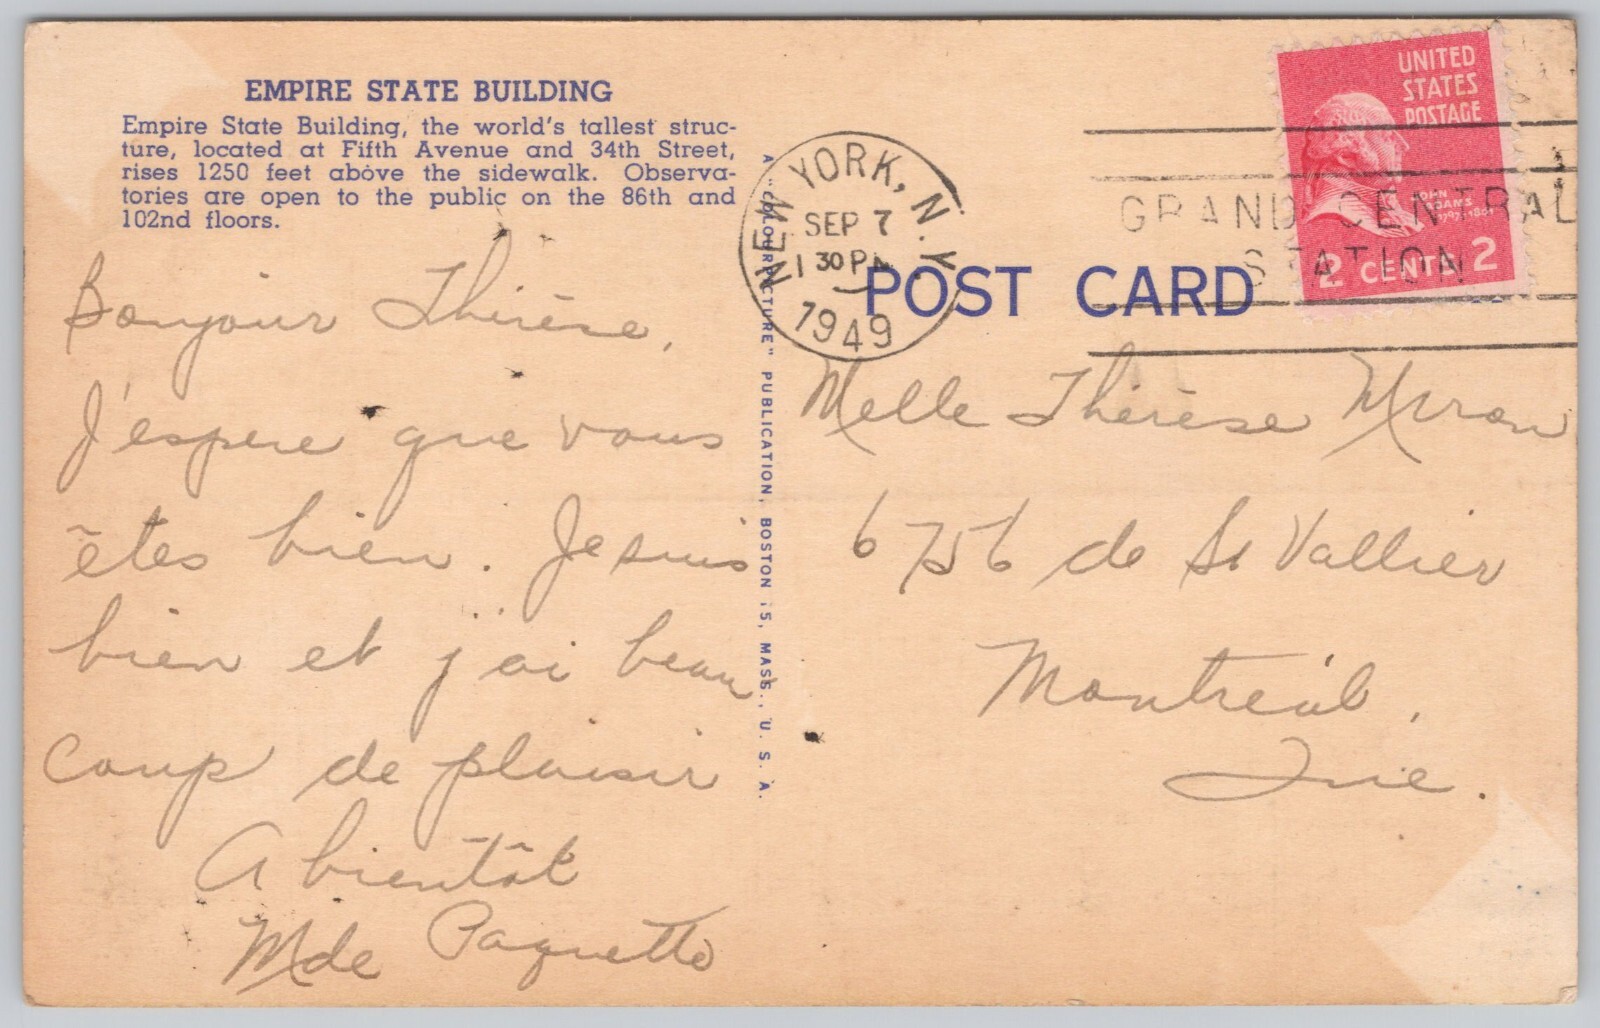 EMPIRE STATE BUILDING
Empire State Building, the world's tallest struc-
ture, located at Fifth Avenue and 34th Street,
rises 1250 feet above the sidewalk. Observa-
tories are open to the public on the 86th and
102nd floors.
Bonjour Thérèse,
J'espere que vous
êtes bien. Je suis
bien et j'ai beau
coup de plaisir
A bientôt
Mde Paquette
A "COLOURPICTURE" PUBLICATION, BOSTON 15, MASS., U. S. A.
NEW YORK, N.Y.
SEP 7
1 30 PM
1949
GRAND CENTRAL
STATION
UNITED
STATES
POSTAGE
JOHN
ADAMS
1797-1801
2 CENTS 2
POST CARD
Melle Thérèse Miron
6756 de St Vallier
Montréal,
Que.